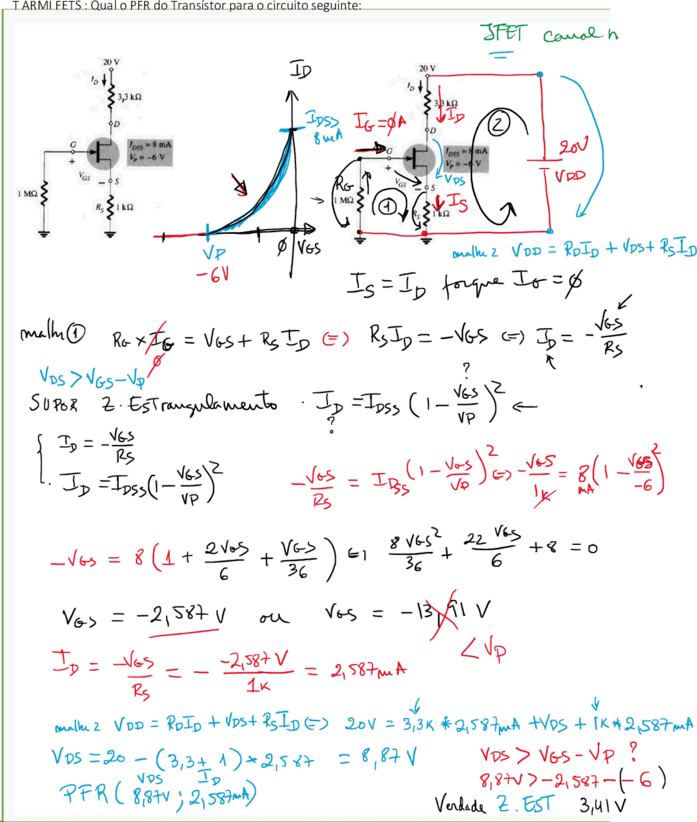 T ARMI FETS : Qual o PFR do Transístor para o circuito seguinte:
JFET canal n
20 V
I_D
3,3 kΩ
D
G
I_DSS = 8 mA
V_P = −6 V
+
V_GS
−
S
1 MΩ
R_S
1 kΩ
I_D
I_DSS
8mA
V_P
−6V
φ
V_GS
20 V
I_D
3,3 kΩ
I_D
I_G=φA
D
G
I_DSS = 8 mA
V_P = −6 V
V_DS
V_GS
S
I_S
R_G
1 MΩ
①
1 kΩ
②
20V
V_DD
malha 2 V_DD = R_D I_D + V_DS + R_S I_D
I_S = I_D porque I_G = φ
malha ① R_G × I_G = V_GS + R_S I_D (=) R_S I_D = −V_GS (=) I_D = −V_GS/R_S
φ
V_DS > V_GS − V_P
SUPOR Z. ESTrangulamento . I_D = I_DSS (1 − V_GS/V_P)² ←
?
?
{ I_D = −V_GS/R_S
. I_D = I_DSS (1 − V_GS/V_P)²
−V_GS/R_S = I_DSS (1 − V_GS/V_P)² (=) −V_GS/1K = 8 mA (1 − V_GS/−6)²
−V_GS = 8 (1 + 2V_GS/6 + V_GS/36) (=) 8 V_GS²/36 + 22 V_GS/6 + 8 = 0
V_GS = −2,587 V ou V_GS = −13,91 V
< V_P
I_D = −V_GS/R_S = − −2,587 V/1K = 2,587mA
malha 2 V_DD = R_D I_D + V_DS + R_S I_D (=) 20V = 3,3K * 2,587mA + V_DS + 1K * 2,587mA
V_DS = 20 − (3,3 + 1) * 2,587 = 8,87 V
V_DS > V_GS − V_P ?
V_DS I_D
PFR ( 8,87V ; 2,587mA)
8,87V > −2,587 − (−6)
Verdade Z. EST 3,41 V